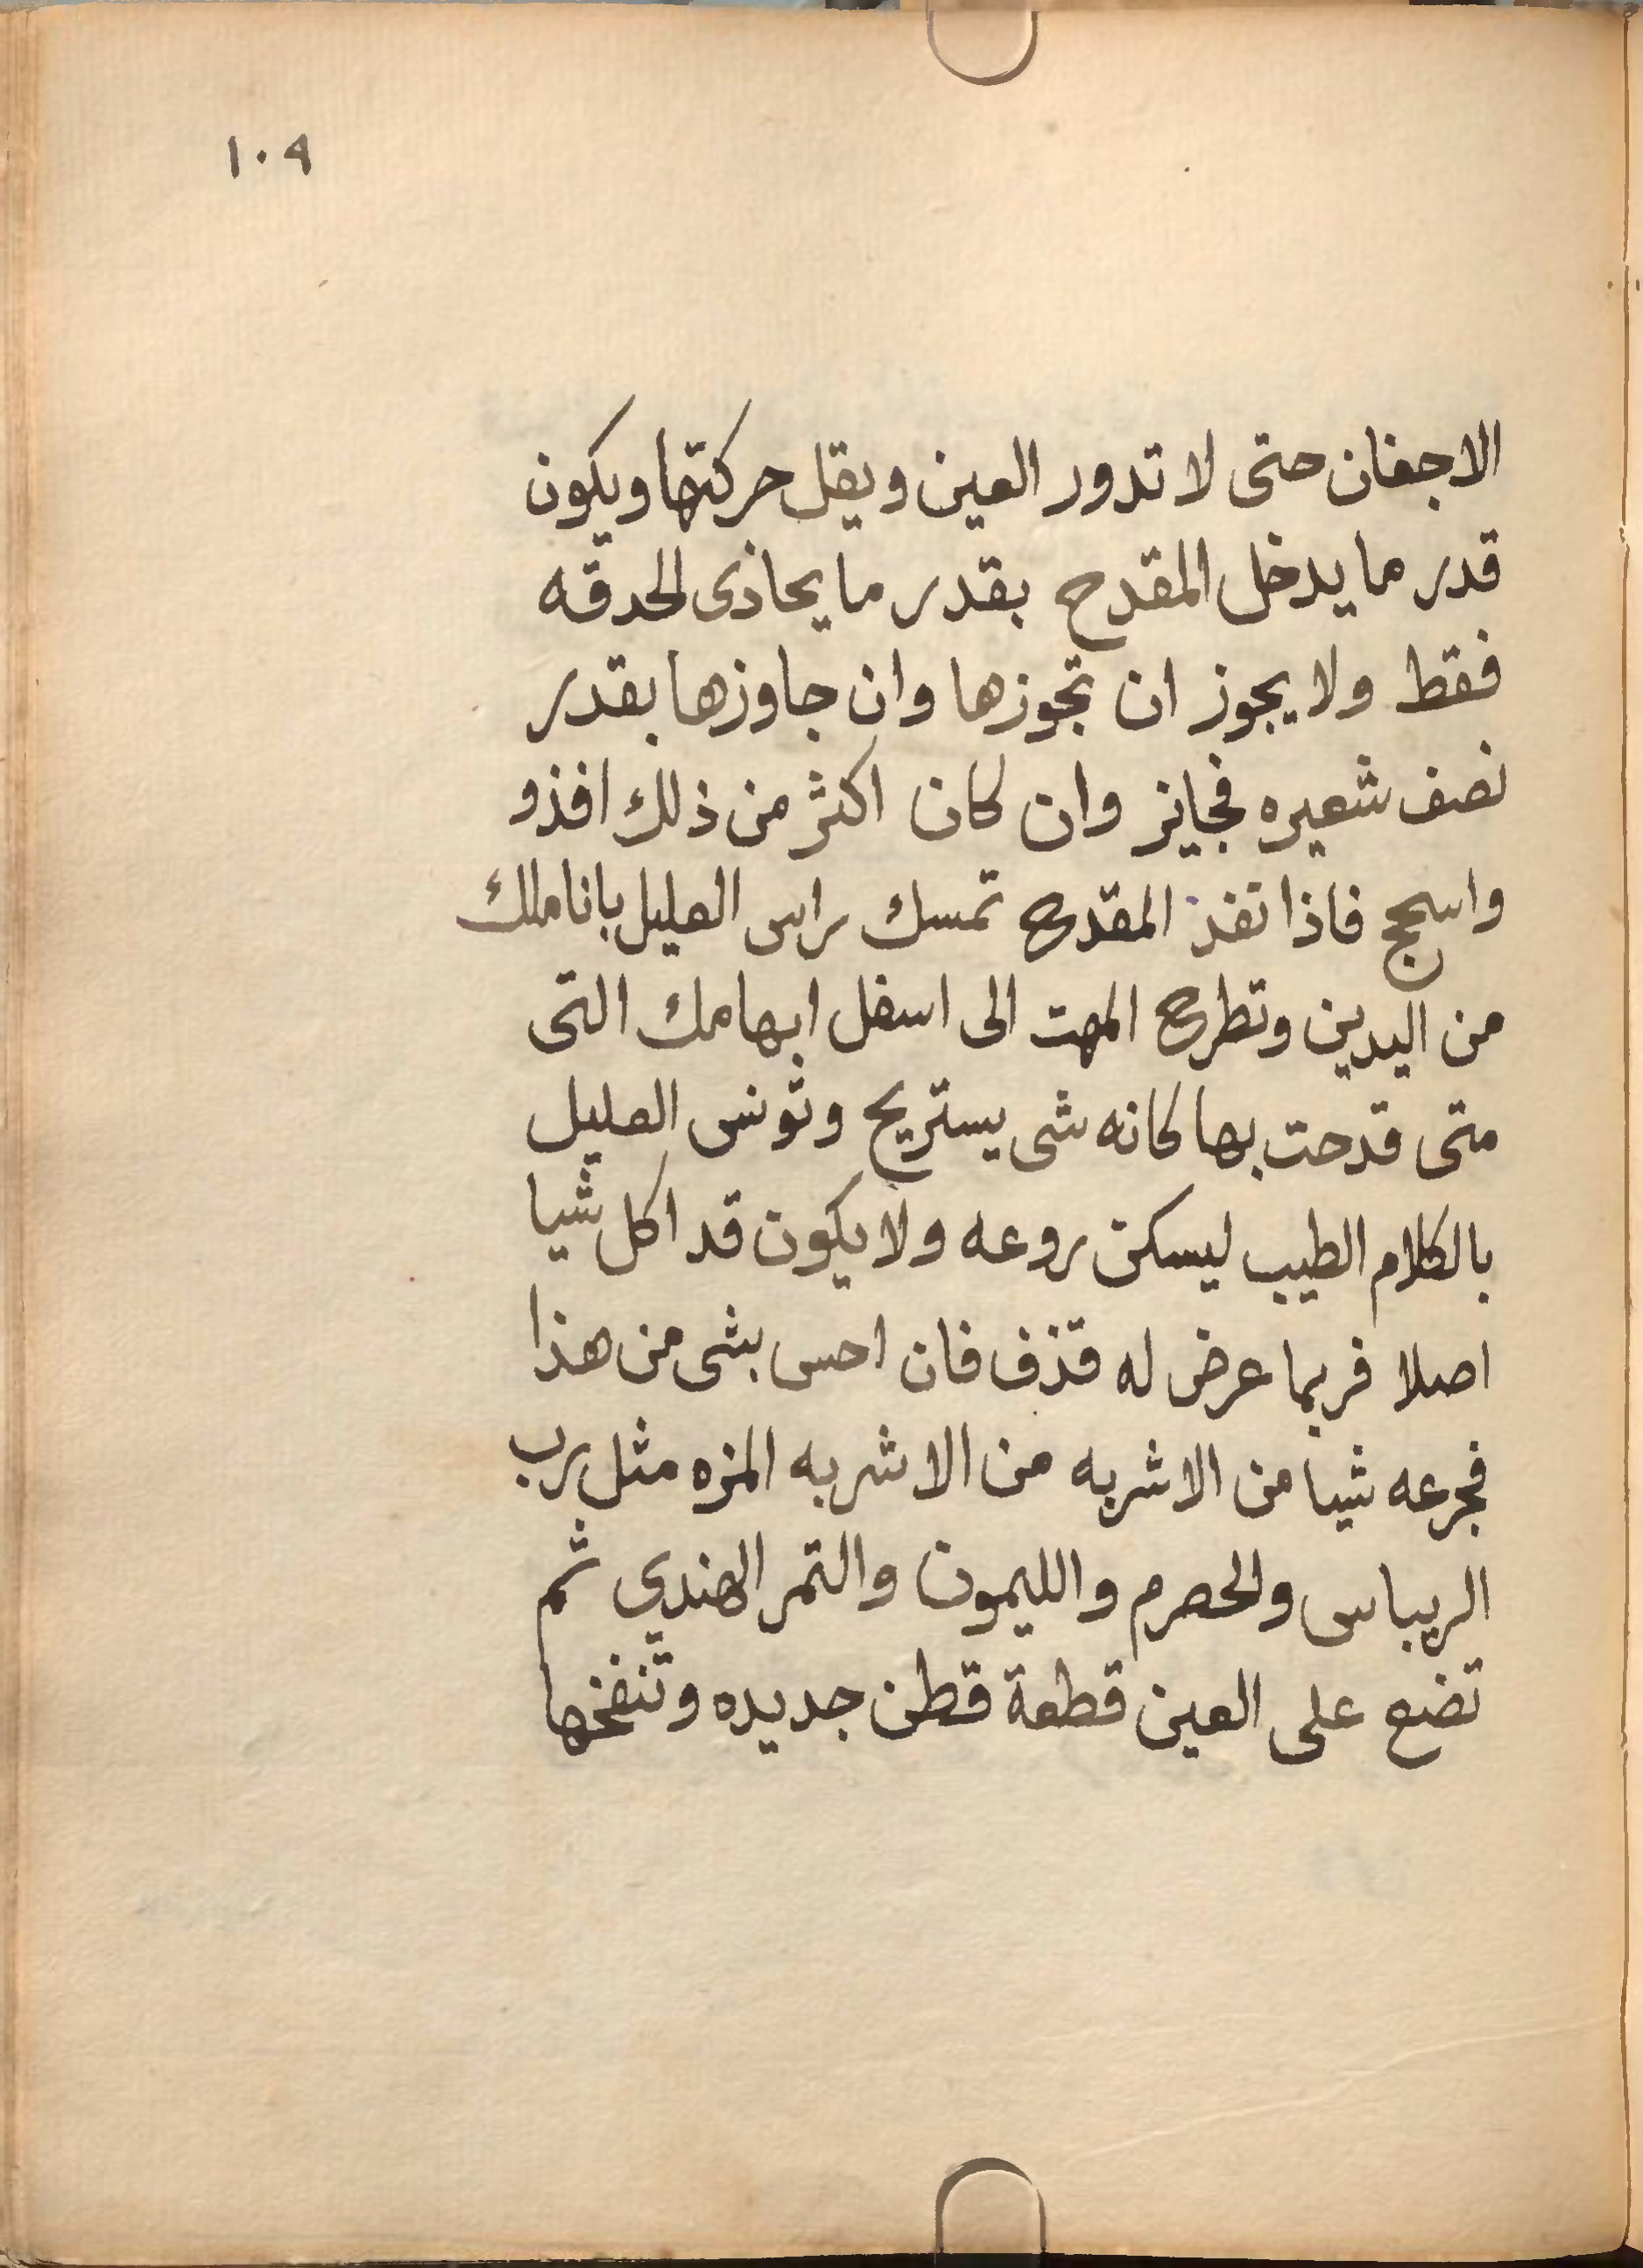 ١٠٩
الاجفان حتى لا تدور العين ويقل حركتها ويكون
قدر ما يدخل المقدح بقدر ما يحاذى الحدقه
فقط ولا يجوز ان تجوزها وان جاوزها بقدر
نصف شعيره فجايز وان كان اكثر من ذلك افذو
واسحج فاذا نفذ المقدح تمسك راس العليل باناملك
من اليدين وتطرح المهت الى اسفل ابهامك التى
متى قدحت بها كانه شى يستريح وتونس العليل
بالكلام الطيب ليسكن روعه ولا يكون قد اكل شيا
اصلا فربما عرض له قذف فان احس بشى من هذا
فجرعه شيا من الاشربه من الاشربه المزه مثل رب
الريباس والحصرم والليمون والتمر الهندي ثم
تضع على العين قطعة قطن جديده وتنفخها